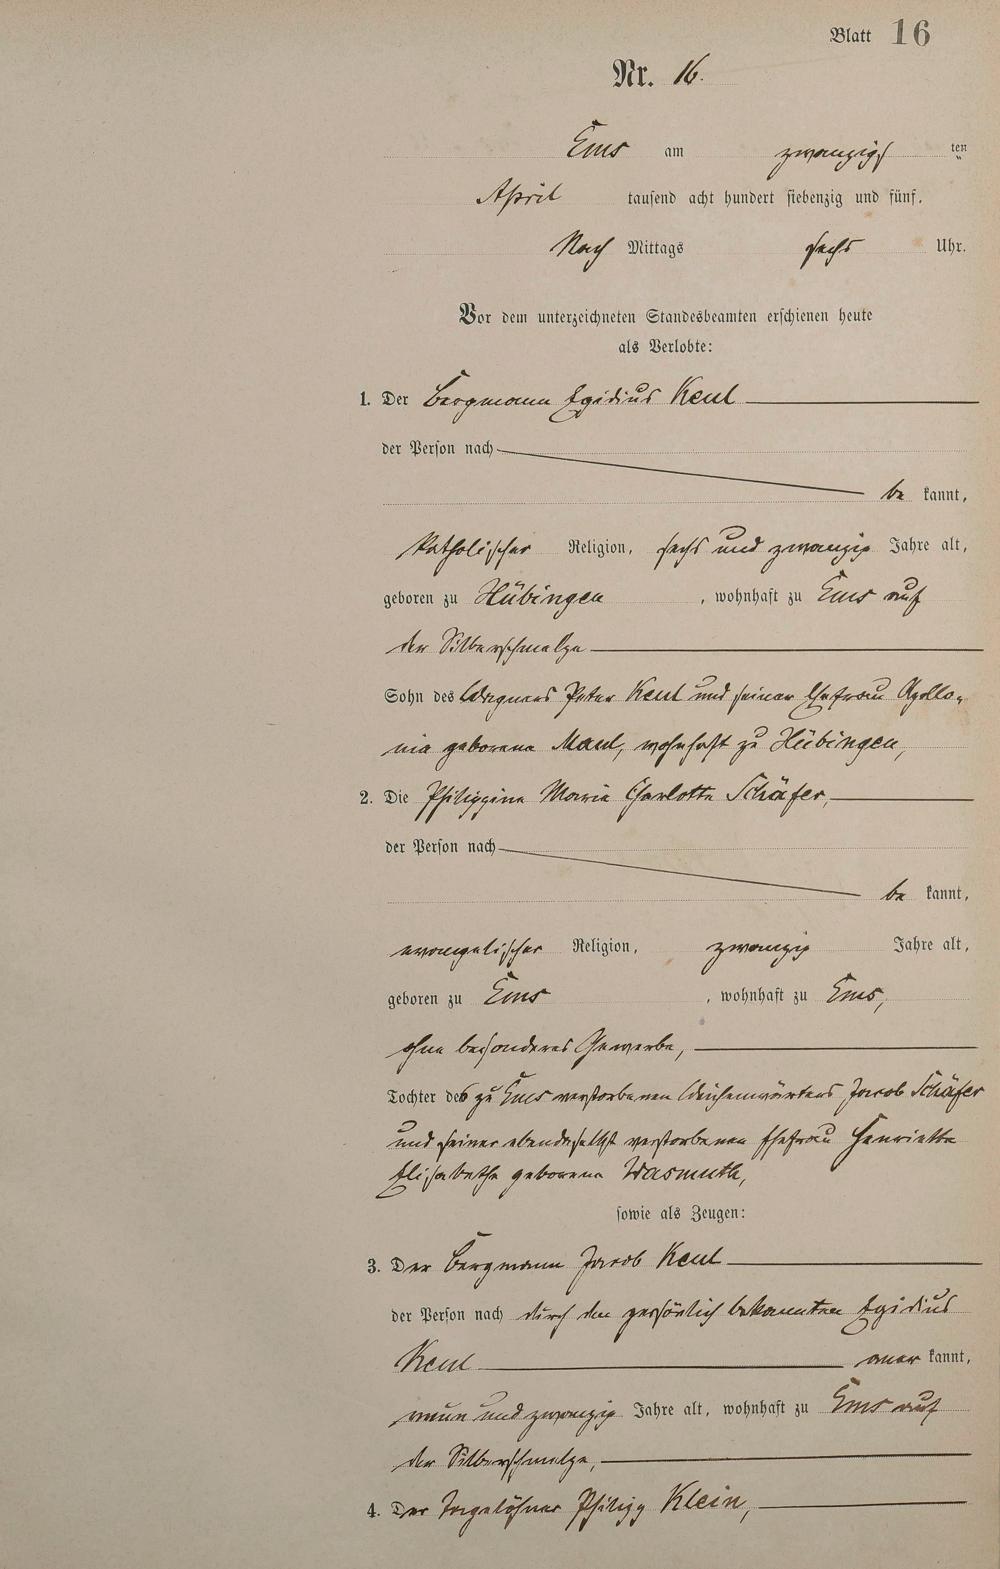 Blatt 16
Nr. 16.
Ems am zwanzigsten
April tausend acht hundert siebenzig und fünf.
Nach Mittags sechs Uhr.
Vor dem unterzeichneten Standesbeamten erschienen heute
als Verlobte:
1. Der Bergmann Egidius Keul
der Person nach
be kannt,
katholischer Religion, sechs und zwanzig Jahre alt,
geboren zu Hübingen, wohnhaft zu Ems auf
der Silberschmelze
Sohn des Wagners Peter Keul und seiner Ehefrau Apollo-
nia geborene Maul, wohnhaft zu Hübingen,
2. Die Philippine Maria Charlotte Schäfer,
der Person nach
be kannt,
evangelischer Religion, zwanzig Jahre alt,
geboren zu Ems, wohnhaft zu Ems,
ohne besonderes Gewerbe,
Tochter des zu Ems verstorbenen Weichenwärters Jacob Schäfer
und seiner ebendaselbst verstorbenen Ehefrau Henriette
Elisabethe geborene Wasmuth,
sowie als Zeugen:
3. Der Bergmann Jacob Keul
der Person nach durch den persönlich bekannten Egidius
Keul aner kannt,
neun und zwanzig Jahre alt, wohnhaft zu Ems auf
der Silberschmelze,
4. Der Tagelöhner Philipp Klein,